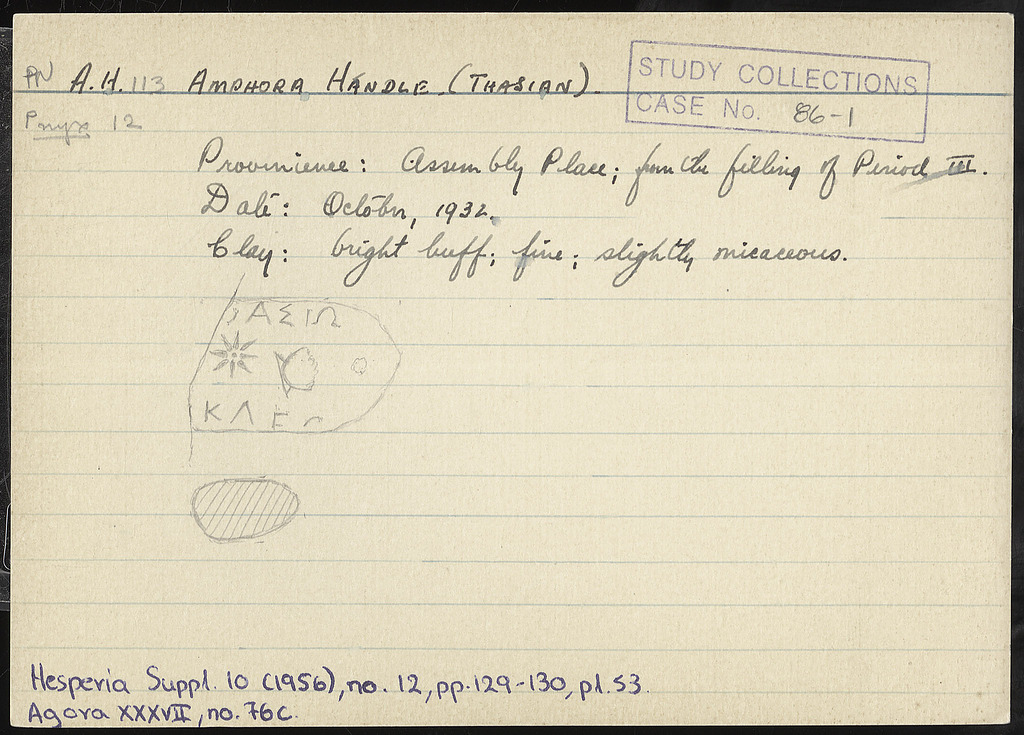 PN A.H. 113 AMPHORA HANDLE (THASIAN).
STUDY COLLECTIONS
CASE No. 86-1
Pnyx 12
Provenience: Assembly Place; from the filling of Period III.
Date: October, 1932.
Clay: bright buff; fine; slightly micaceous.
ΑΣΙΩ
ΚΛΕ
Hesperia Suppl. 10 (1956), no. 12, pp. 129-130, pl. 53.
Agora XXXVII, no. 76c.